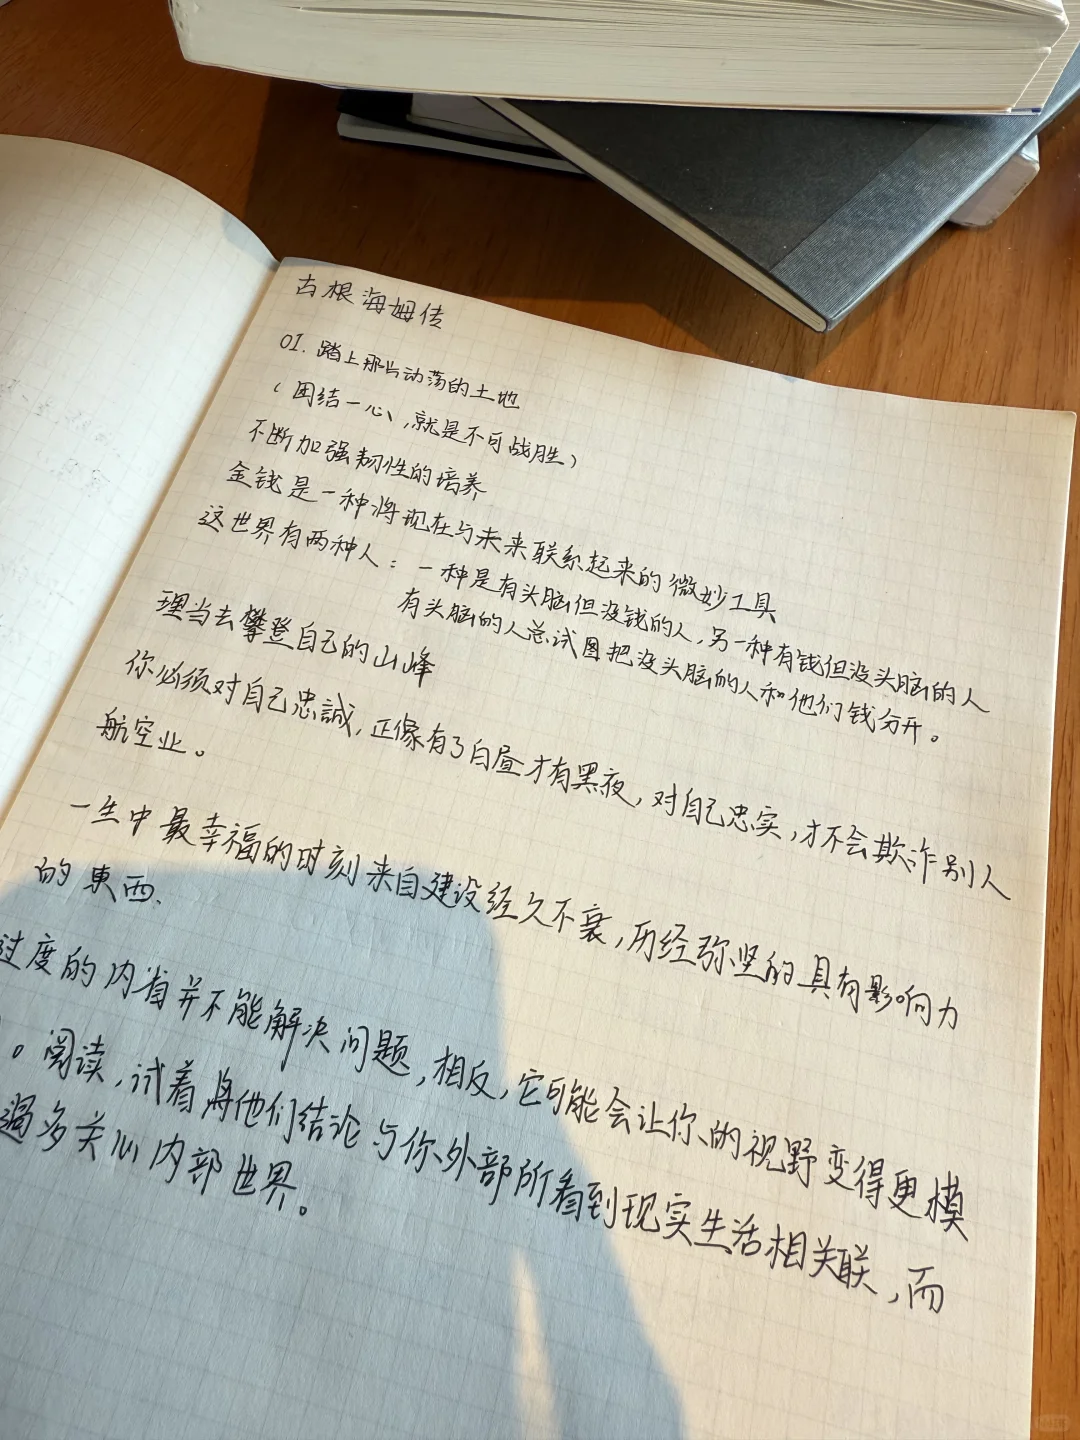 古根海姆传
01. 踏上那片动荡的土地
(团结一心,就是不可战胜)
不断加强韧性的培养
金钱是一种将现在与未来联系起来的微妙工具
这世界有两种人：一种是有头脑但没钱的人,另一种有钱但没头脑的人
有头脑的人总试图把没头脑的人和他们钱分开。
理当去攀登自己的山峰
你必须对自己忠誠,正像有了白昼才有黑夜,对自己忠实,才不会欺诈别人
航空业。
一生中最幸福的时刻来自建设经久不衰,历经弥坚的具有影响力
的東西.
过度的内省并不能解决问题,相反,它可能会让你的视野变得更模
。阅读,试着将他们结论与你外部所看到现实生活相关联,而
過多关心内部世界。